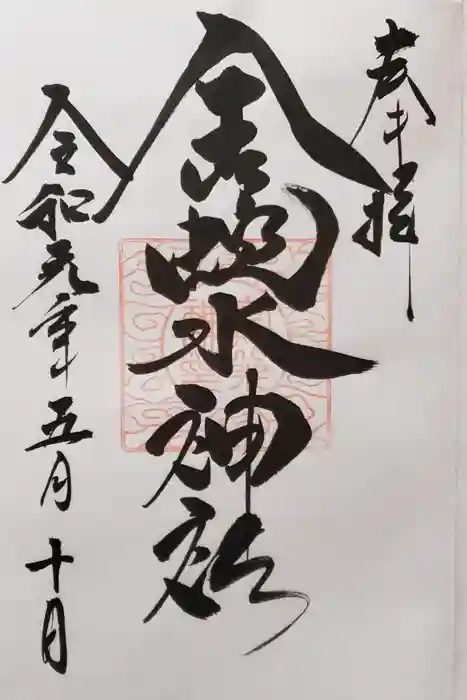 奉拝
金蛇水神社
令和元年五月十日